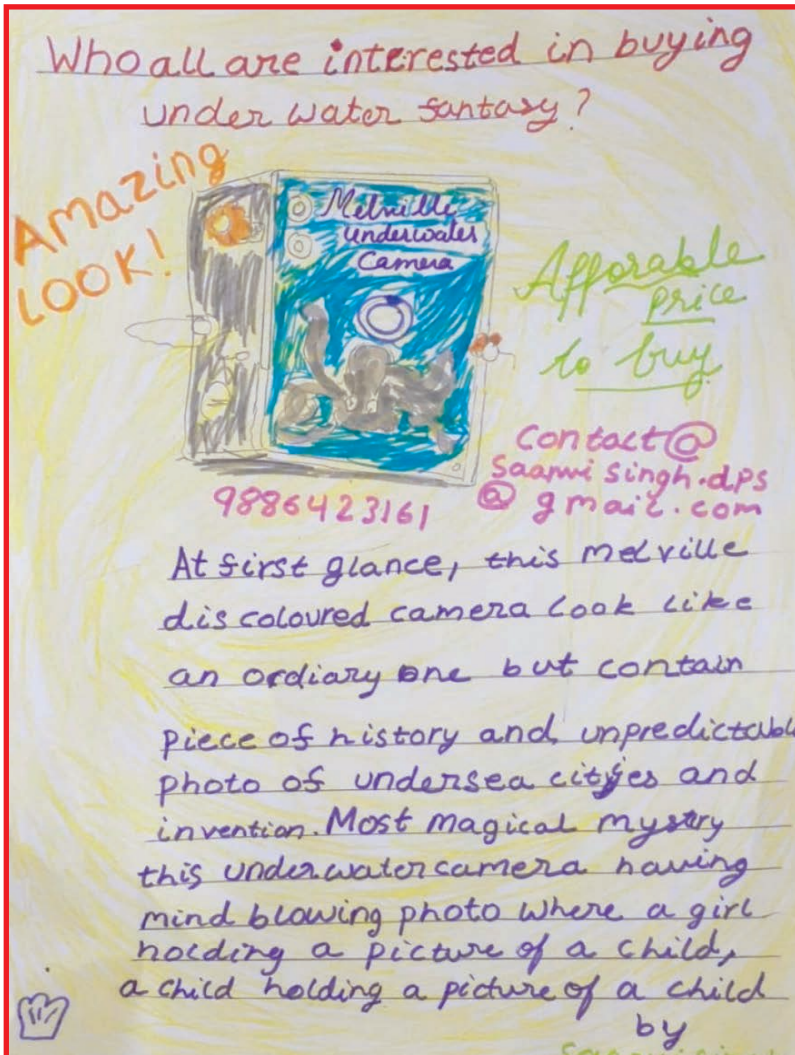 Who all are interested in buying
under water fantasy?
Amazing
LOOK!
Melville
underwater
Camera
Afforable
price
to buy
Contact@
saanvisingh.dps
@gmail.com
9886423161
At first glance, this melville
discoloured camera look like
an ordiary one but contain
piece of history and unpredictable
photo of undersea cityes and
invention. Most magical mystry
this underwatercamera having
mind blowing photo where a girl
holding a picture of a child,
a child holding a picture of a child
by